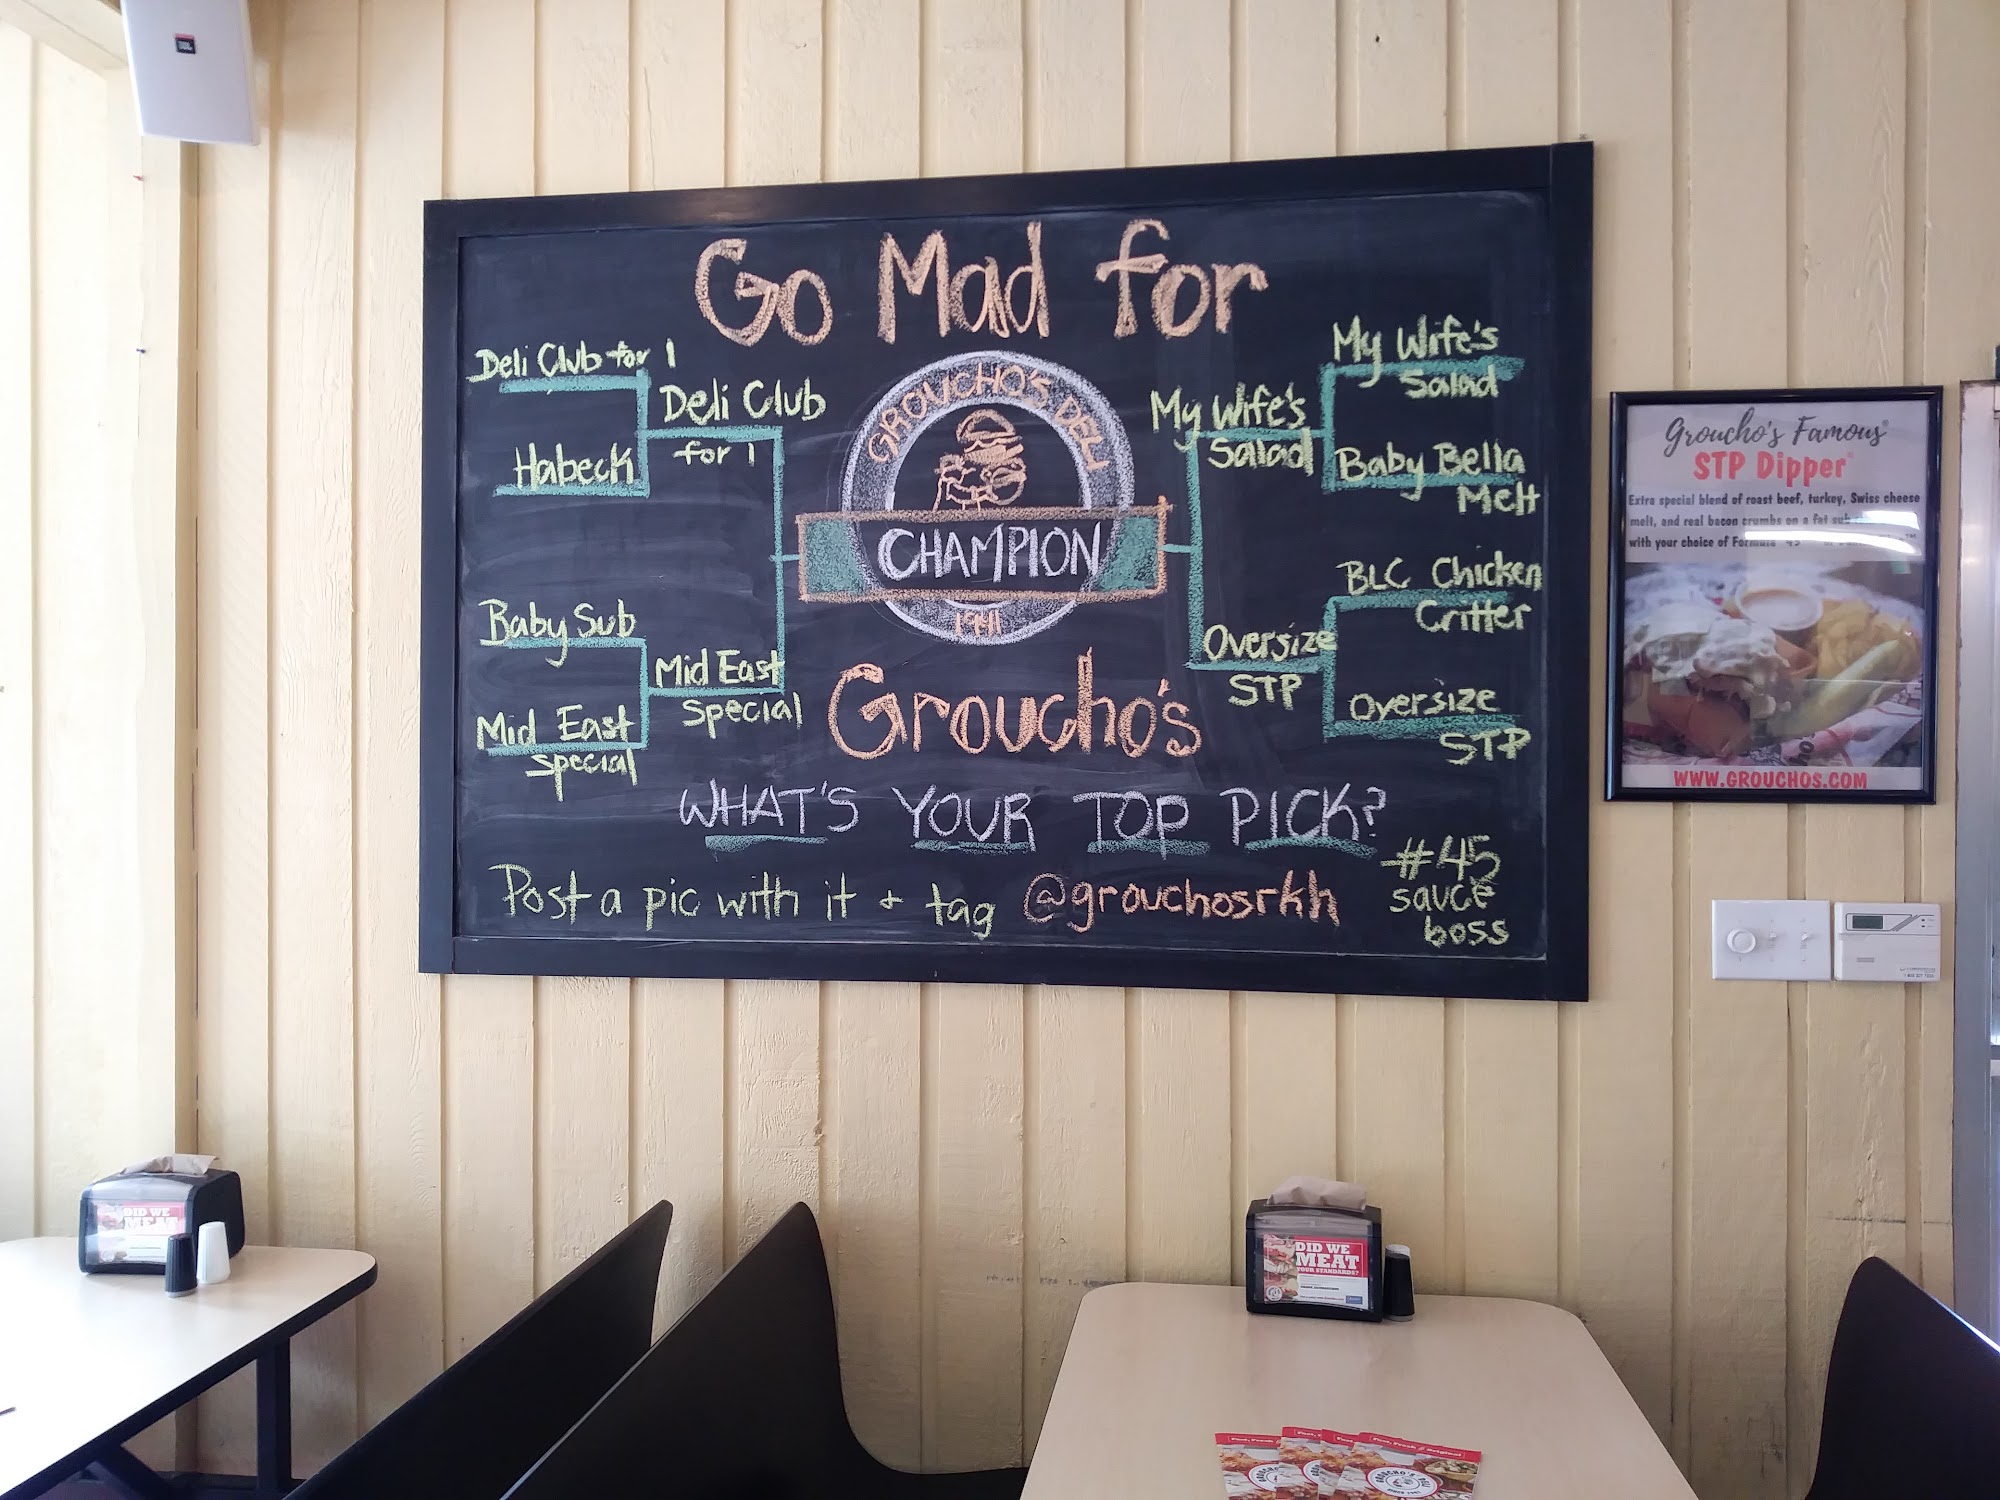 JBL
Go Mad for
Deli Club for 1
Habeck
Baby Sub
Mid East
Special
Deli Club
for 1
Mid East
Special
GROUCHO'S DELI
CHAMPION
1941
My Wife's
Salad
Oversize
STP
My Wife's
Salad
Baby Bella
Melt
BLC Chicken
Critter
Oversize
STP
Groucho's
WHAT'S YOUR TOP PICK?
Post a pic with it + tag @grouchosrkh
#45
sauce
boss
Groucho's Famous®
STP Dipper®
Extra special blend of roast beef, turkey, Swiss cheese
melt, and real bacon crumbs on a fat sub
with your choice of Formula 45
WWW.GROUCHOS.COM
DID WE
MEAT
DID WE
MEAT
YOUR STANDARDS?
Fast, Fresh & Original
GROUCHO'S DELI